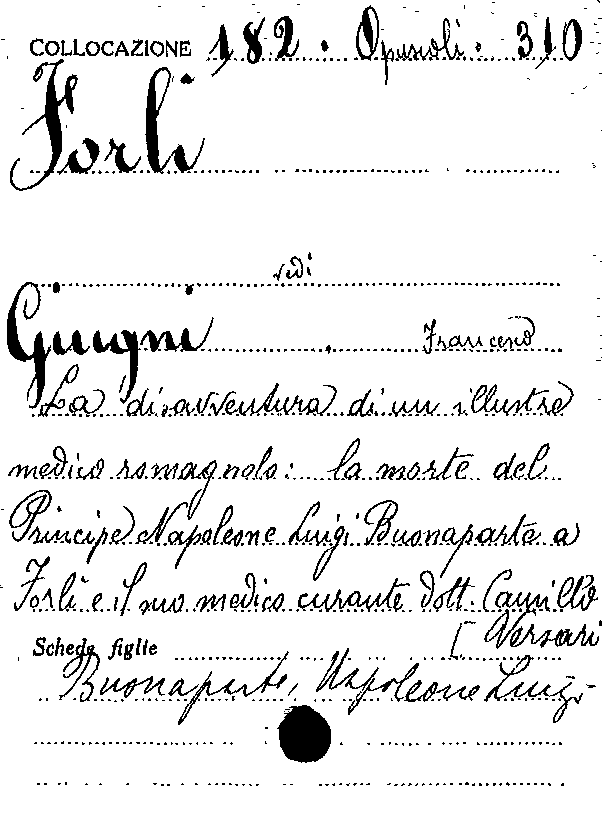 COLLOCAZIONE 182. Opuscoli. 310
Forlì
vedi
Giugni, Francesco
La disavventura di un illustre
medico romagnolo: la morte del
Principe Napoleone Luigi Buonaparte a
Forlì e il suo medico curante dott. Camillo
[Versari
Schede figlie
Buonaparte, Napoleone Luigi